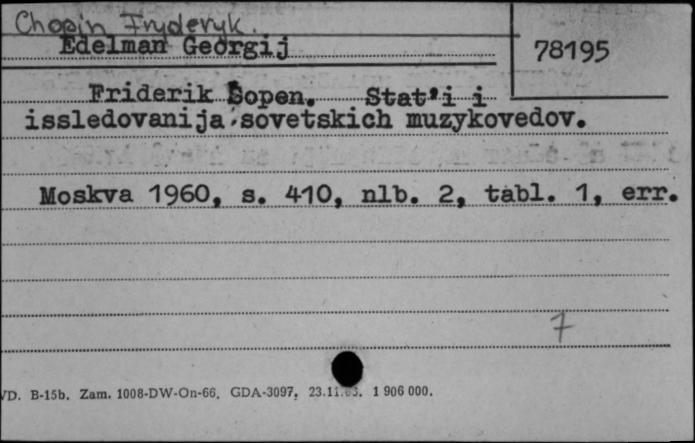 Chopin Fryderyk.
Edelman Georgij
78195
Friderik Šopen. Stat'i i
issledovanija sovetskich muzykovedov.
Moskva 1960, s. 410, nlb. 2, tabl. 1, err.
7
VD. B-15b. Zam. 1008-DW-On-66. GDA-3097, 1 906 000.